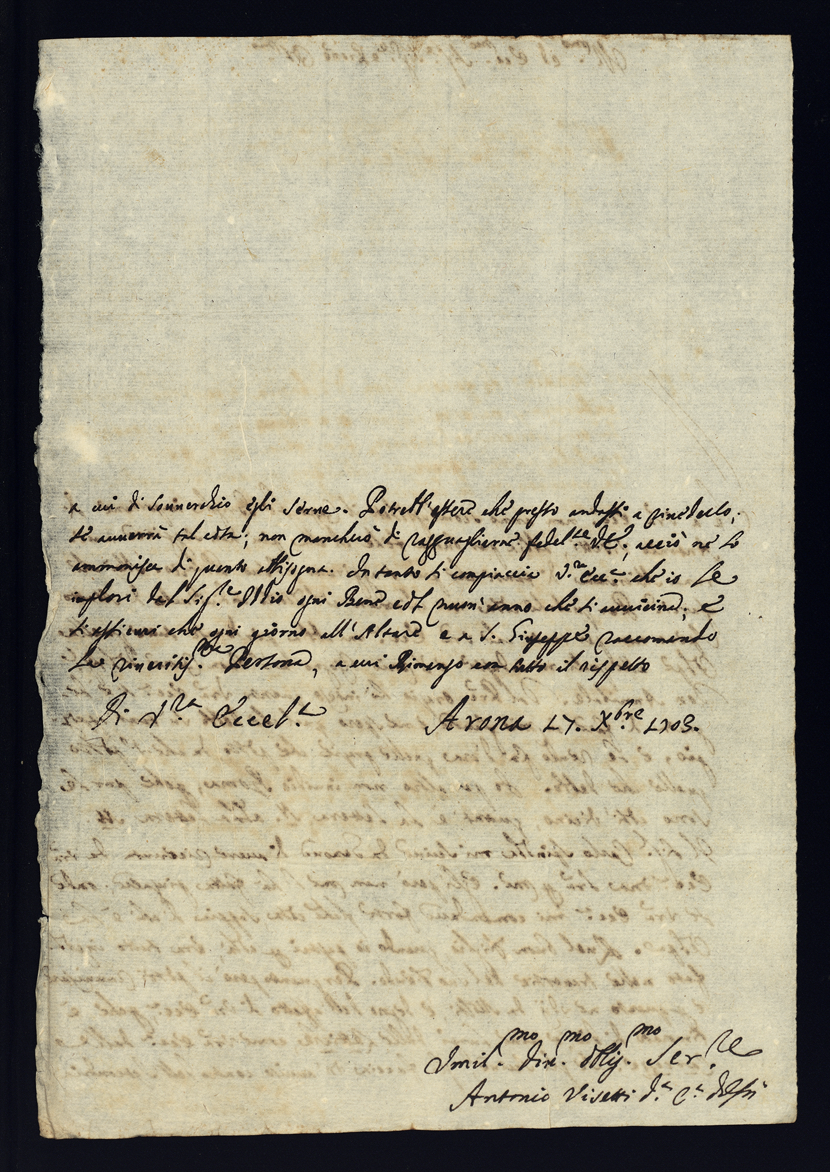 a cui di soverchio egli serue. Potrebb'essere che presto andassi a riuederlo;
se auuerrà tal cosa; non mancherò di ragguagliarne fedel.te V.E., acciò ne lo
ammonisca di quanto abbisogna. In tanto si compiaccia V.ra Ecc.a che io Le
implori dal Sig.re Iddio ogni Bene nel nuou'anno che si auuicina; e
si assicuri che ogni giorno all'Altare e a S. Giuseppe raccomando
La riueritiss.ma Persona, a cui Rimango con tutto il rispetto
Di V.ra Eccel.a Arona 17. Xbre 1703.
Vmil.mo Diu.mo Obblig.mo Ser.re
Antonio Visetti d.a C.a